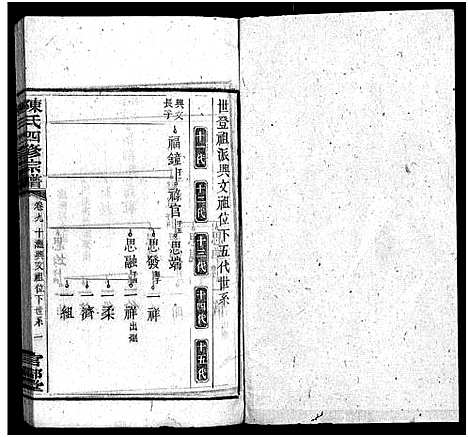 世登祖派興文祖位下五代世系
十一代
十二代
十三代
十四代
十五代
興文長子
福鐘
祿官
思端
思發
一祥
思融
一祥出繼
一柔
一濟
一組
陳氏四修宗譜
卷九
十選興文祖位下世系
一